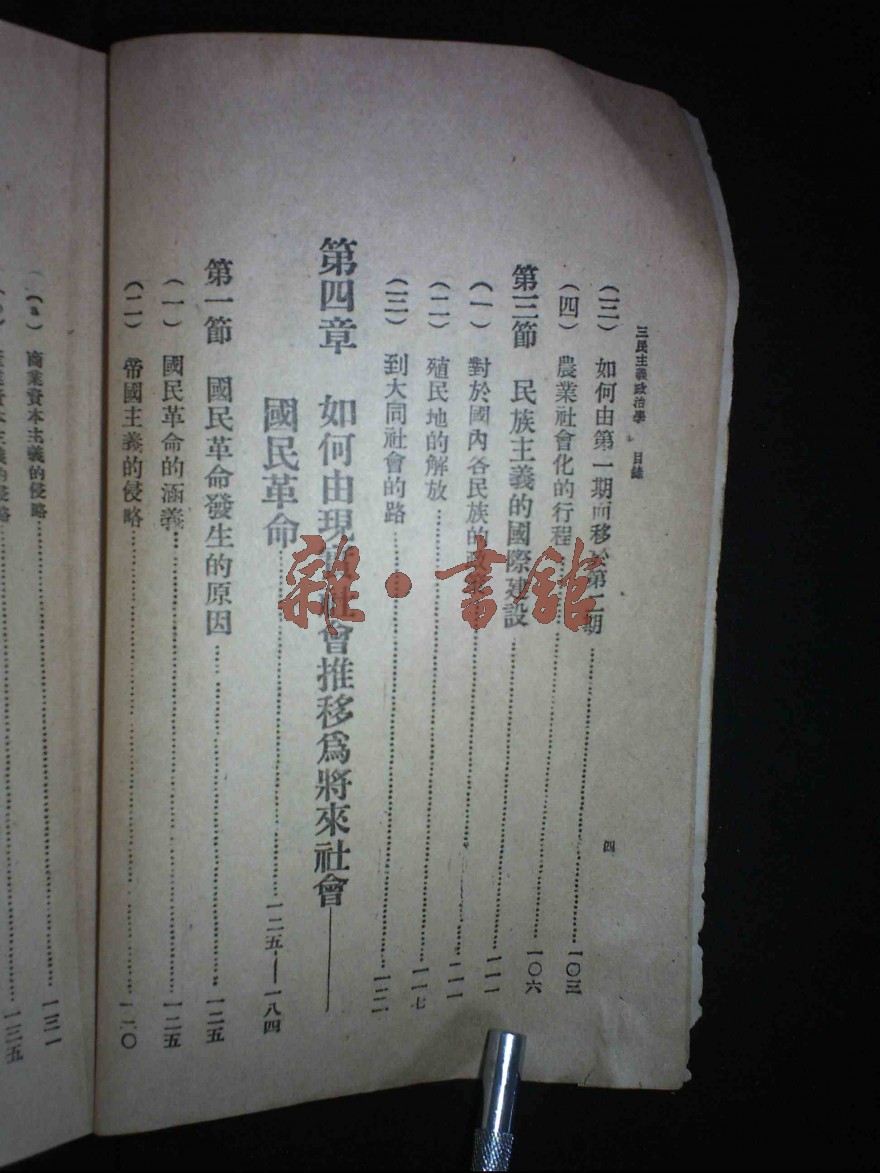 三民主義政治學 目錄
四
(三) 如何由第一期而移於第二期……一〇三
(四) 農業社會化的行程……一〇六
第三節 民族主義的國際建設……一一一
(一) 對於國內各民族的政策……一一一
(二) 殖民地的解放……一一七
(三) 到大同社會的路……一二二
第四章 如何由現在社會推移爲將來社會——
國民革命……一二五—一八四
第一節 國民革命發生的原因……一二五
(一) 國民革命的涵義……一二五
(二) 帝國主義的侵略……一三〇
(a) 商業資本主義的侵略……一三一
資本主義的侵略……一三五
雜·書館